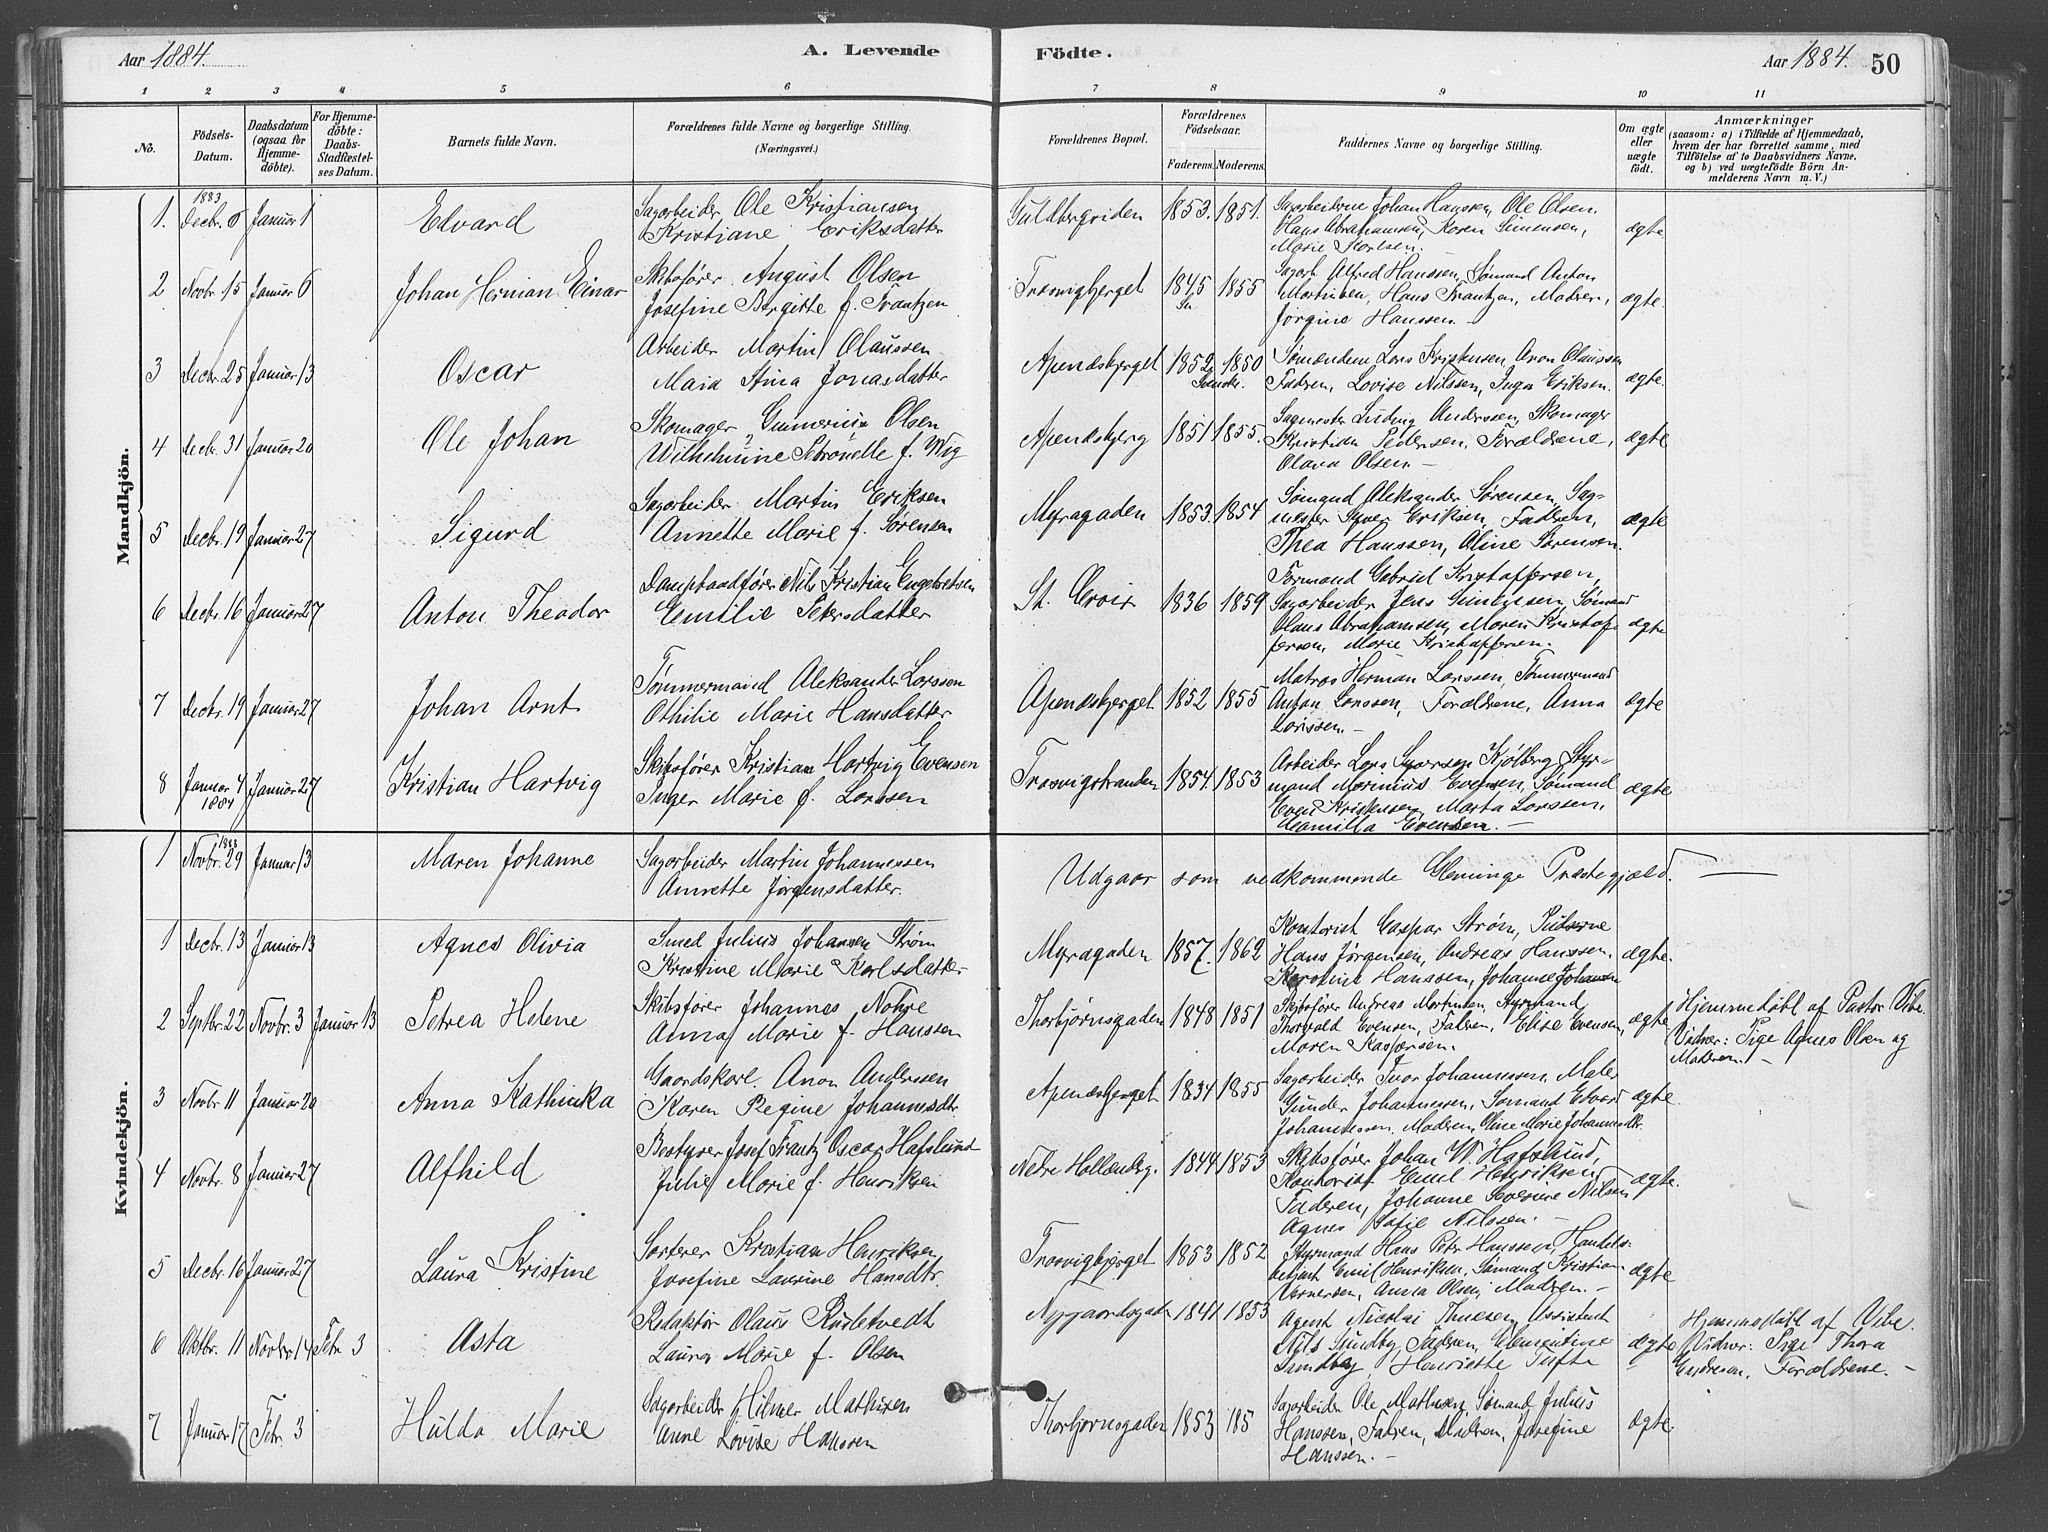 Aar 1884. A. Levende Födte. Aar 1884. 50
1 2 3 4 5 6 7 8 9 10 11
No.
Födsels-Datum.
Daabsdatum (ogsaa for Hjemme-döbte).
For Hjemme-döbte: Daabs-Stadfæstel-ses Datum.
Barnets fulde Navn.
Forældrenes fulde Navne og borgerlige Stilling.
(Næringsvei.)
Forældrenes Bopæl.
Forældrenes Födselsaar.
Faderens. Moderens.
Faddernes Navne og borgerlige Stilling.
Om ægte eller uægte födt.
Anmærkninger
(saasom: a) i Tilfælde af Hjemmedaab,
hvem der har forrettet samme, med
Tilföielse af to Daabsvidners Navne,
og b) ved uægtefödte Börn An-
melderens Navn m. V.)
Mandkjön.
1883
1. Decbr. Januar 1 Edvard
Sagarbeider Ole Kristiansen
Kristiane Eriksdatter
1853. 1851.
Sagarbeiderne Johan Hanssen, Ole Olsen
Hans Abrahamsen, Karen Simensen,
Marie
ægte
2 Novbr. 15 Januar 6 Johan Herman Einar
Skibsfører August Olsen
Josefine Bergitte f. Frantzen
Trosvigbjerget 1845 1855
Sagarb. Alfred Hanssen, Sømand Anton
Martinsen, Hans Frantzen, Moderen,
Jørgine Hanssen.
ægte.
3 Decbr. 25 Januar 13 Oscar
Arbeider Martin Olaussen
Maia Stina Jonasdatter
Apenæsbjerget 1852 1850
Svenske.
Sømændene Lars Kristensen, Aron Olaussen
Faderen, Lovise Nilssen, Inga Eriksen.
ægte.
4 Decbr. 31 Januar 20 Ole Johan
Skomager Gunnerius Olsen
Wilhelmine Petronelle f. Wig
Apenæsbjerg 1851 1855.
Sagmester Ludvig Anderssen, Skomager
Kristian Pedersen, Forældrene,
Olava Olsen.
ægte
5 Decbr. 19 Januar 27 Sigurd
Sagarbeider Martin Eriksen
Annette Marie f. Sørensen
Myragaden 1853. 1854
Sømand Aleksander Sørensen, Sag-
mester Syver Eriksen, Faderen,
Thea Hanssen, Oline Sørensen.
ægte
6 Decbr. 16 Januar 27 Anton Theodor
Dampbaadfører Nils Kristian Engebretsen
Emilie Petersdatter
St. Croix 1836 1859
Formand Gabriel Kristoffersen,
Sagarbeider Jens Simensen, Sømand
Hans Abrahamsen, Maren Kristof-
fersen, Marie Kristoffersen.
ægte
7 Decbr. 19 Januar 27 Johan Arnt
Tømmermand Aleksander Larssen
Othilie Marie Hansdatter
Apenæsbjerget 1852 1855
Matros Herman Larssen, Tømmermand
Anton Larssen, Forældrene, Anna
Larssen.
ægte
8 Januar 4 1884 Januar 27 Kristian Hartvig
Skibsfører Kristian Hartvig Evensen
Inger Marie f. Larssen
Trosvigstranden 1854. 1853
Arbeider Lars Syversen Kjølberg, Styr-
mand Marinius Evensen, Sømand
Even Kristensen, Marta Larssen,
Camilla Evensen.
ægte
Kvindekjön.
1 Novbr. 29 Januar 13 Maren Johanne
Sagarbeider Martin Johannessen
Annette Jørgensdatter.
Udgaar som vedkommende Glemminge Præstegjæld.
1 Decbr. 13 Januar 13 Agnes Olivia
Smed Julius Johansen Strøm
Kristine Marie Karlsdatter
Myragaden 1857. 1862
Kontorist Caspar Strøm,
Hans Jørgensen, Andreas Hanssen,
Karoline Hanssen, Johanne Johansen
ægte.
2 Septbr. 22 Novbr. 3 Januar 13 Petrea Helene
Skibsfører Johannes Nohre
Anna Marie f. Hanssen
Thorbjørnsgaden 1848 1851
Skibsfører Andreas Martinsen, Styrmand
Thorvald Evensen, Faderen, Elise Evensen,
Maren Kaspersen.
ægte
Hjemmedøbt af Pastor Vibe.
Vidner: Pige Agnes Olsen og
Moderen.
3 Novbr. 11 Januar 20 Anna Kathinka
Gaardskarl Aron Anderssen
Karen Regine Johannesdtr.
Apenæsbjerget 1834 1855
Sagarbeider Ivar Johannessen, Maler
Gunder Johannessen, Sømand Edvard
Johannessen, Moderen, Oline Marie Johannesdtr.
ægte.
4 Novbr. 8 Januar 27 Alfhild
Bestyrer Josef Frantz Oscar Hafslund
Julie Marie f. Henriksen
Nedre Hollenderg. 1844 1853
Skibsfører Johan W. Hafslund,
Kontorist Emil Henriksen,
Faderen, Johanne Severine Nilsen,
Agnes Sofie Nilssen.
ægte.
5 Decbr. 16 Januar 27 Laura Kristine
Sorterer Kristian Henriksen,
Josefine Laurine Hansdtr.
Trosvigbjerget 1853 1852
Styrmand Hans Peter Hanssen, Handels-
betjent Emil Henriksen, Sømand Kristian
Anna Olsen, Moderen.
ægte
6 Oktbr. 11 Novbr. 14 Febr. 3 Asta
Redaktør Olaus
Laura Marie f. Olsen
Nygaardsgaden 1841 1853
Agent Nicolai Thuesen, Assistent
Nils Sundby, Faderen, Clementine
Sundby, Henriette Tufte
ægte
Hjemmedøbt af Vibe.
Vidner: Pige Thora
Forældrene.
7 Januar 17 Febr. 3 Hulda Marie
Sagarbeider Hilmer Mathisen
Anne Lovise Hanssen
Thorbjørnsgaden 1853 185
Sagarbeider Ole Mathisen, Sømand Julius
Hanssen, Faderen, Moderen, Josefine
Hanssen.
ægte.